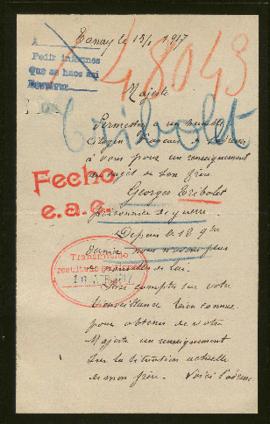 48043
Tanay le 13/1 1917
A
Pedir informes
Que se hace aquí
Majesté
Tribolet
Permettez a un humble
citoyen français de
à vous pour un renseignement
au sujet de son frère
Georges Tribolet
prisonnier de guerre
Fecho
e.a.c.
Depuis le 18 9bre
nous n'avons plus
de nouvelles de lui.
Transmitido
compter sur votre
bienveillance bien connue
pour obtenir de votre
Majesté un renseignement
sur la situation actuelle
de mon frère. Voici l'adresse